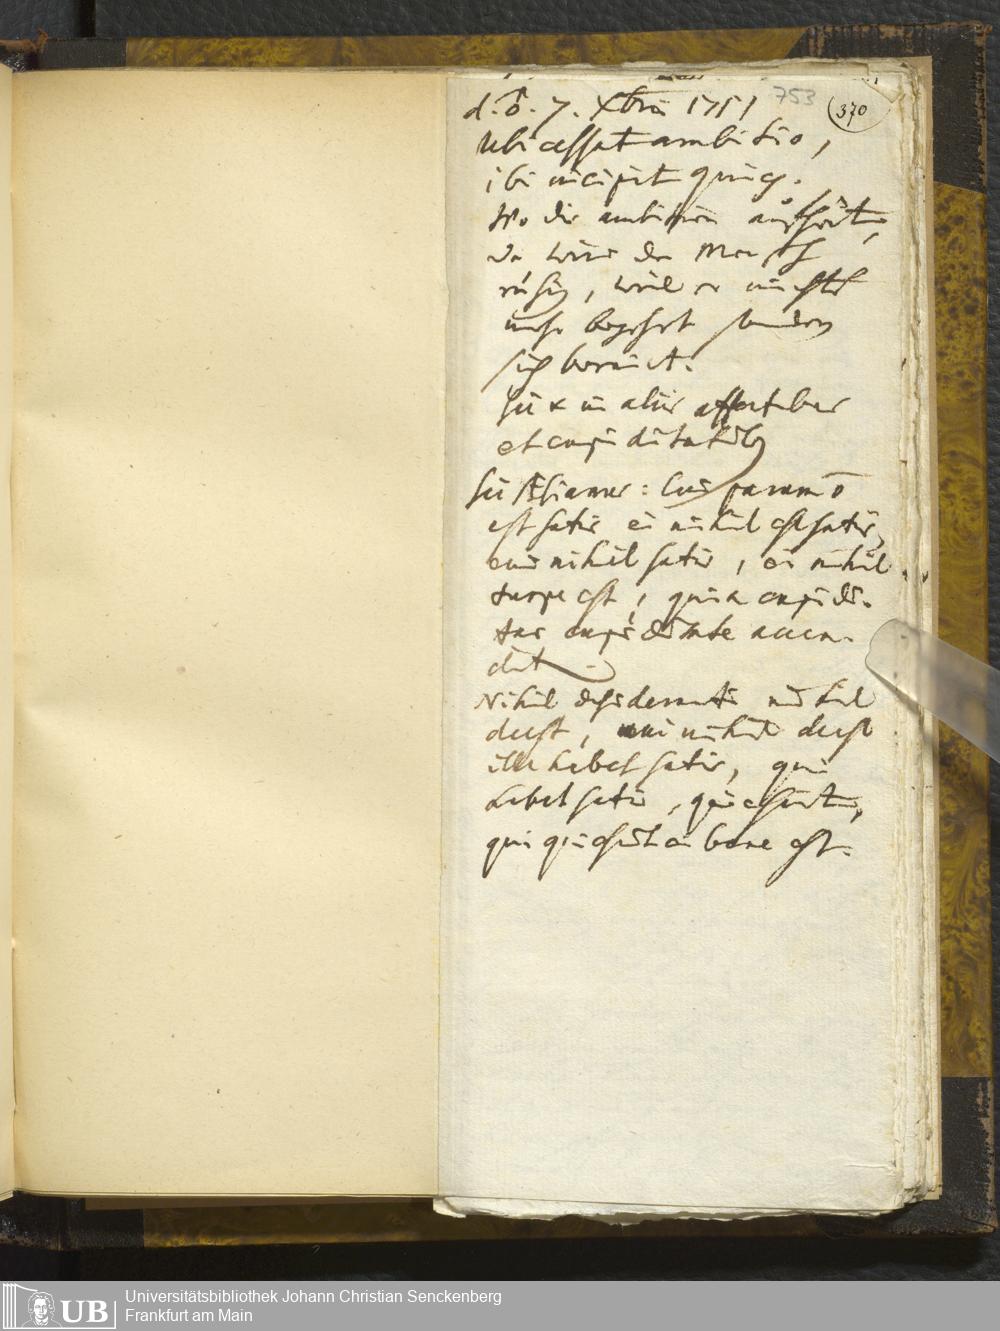 753
370
d. 7. Xbris 1751
Ubi cessat ambitio,
ibi incipit quies.
Wo die ambition aufhört,
da wird der Mensch
ruhig, weil er nichts
mehr begehrt sondern
sich
Sic & in aliis affectibus
et cupiditatibus
cui parum ō
est satis ei nihil est satis,
cui nihil satis, ei nihil
turpe est, quia cupidi-
tas cupiditate accen-
dit
Nihil desideranti nihil
deest, cui nihil deest
ille habet satis, qui
habet satis, quiescit,
qui quiescit ei bene est.
UB
Universitätsbibliothek Johann Christian Senckenberg
Frankfurt am Main